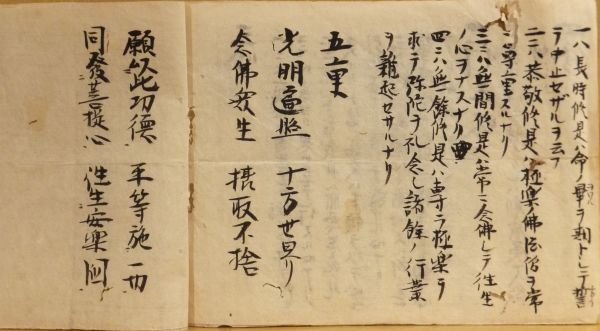 一ハ長時修是ハ命ノ畢ヲ期トシテ誓
テ中止セザルヲ云フ
二ニハ恭敬修是ハ極楽ノ佛法僧ヲ常
ニ尊重スルナリ
三ニハ無間修是ハ常ニ念佛シテ往生
ノ心ヲナスナリ
四ニハ無餘修是ハ専ラ極楽ヲ
求テ弥陀ヲ礼念シ諸餘ノ行業
ヲ雜起セサルナリ
五重
光明遍照 十方世界
念佛衆生 摂取不捨
願此功徳 平等施一切
同發菩提心 往生安樂国